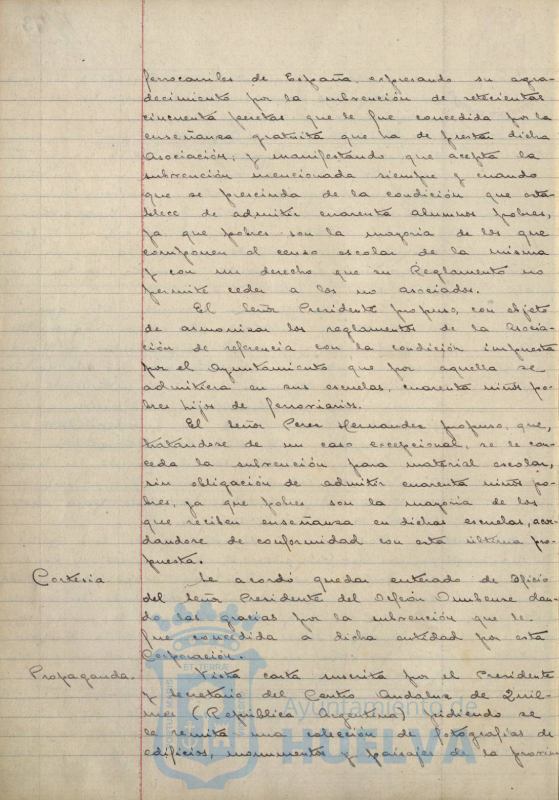 ferrocarriles de España, expresando su agra-
decimiento por la subvención de setecientas
cincuenta pesetas que le fue concedida por la
enseñanza gratuita que ha de prestar dicha
Asociación; y manifestando que acepta la
subvención mencionada siempre y cuando
que se prescinda de la condición que esta-
blece de admitir cuarenta alumnos pobres,
ya que pobres son la mayoria de los que
componen el censo escolar de la misma
y con un derecho que su Reglamento no
permite ceder a los no asociados.
El Señor Presidente propuso, con objeto
de armonizar los reglamentos de la Asocia-
ción de referencia con la condición impuesta
por el Ayuntamiento que por aquella se
admitiera en sus escuelas, cuarenta niños po-
bres hijos de ferroviarios.
El Señor Perez Hernandez propuso, que,
tratandose de un caso excepcional, se le con-
ceda la subvención para material escolar,
sin obligación de admitir cuarenta niños po-
bres, ya que pobres son la mayoria de los
que reciben enseñanza en dichas escuelas, acor-
dandose de conformidad con esta última pro-
puesta.
Cortesia Se acordó quedar enterado de oficio
del Señor Presidente del Orfeón Onubense dan-
do las gracias por la subvención que le
fue concedida a dicha entidad por esta
Corporación.
Propaganda. Vista carta suscrita por el Presidente
y Secretario del Centro Andaluz de Quil-
mes (República Argentina) pidiendo se
le remita una colección de fotografías de
edificios, monumentos y paisajes de la provin-
Ayuntamiento de
HUELVA